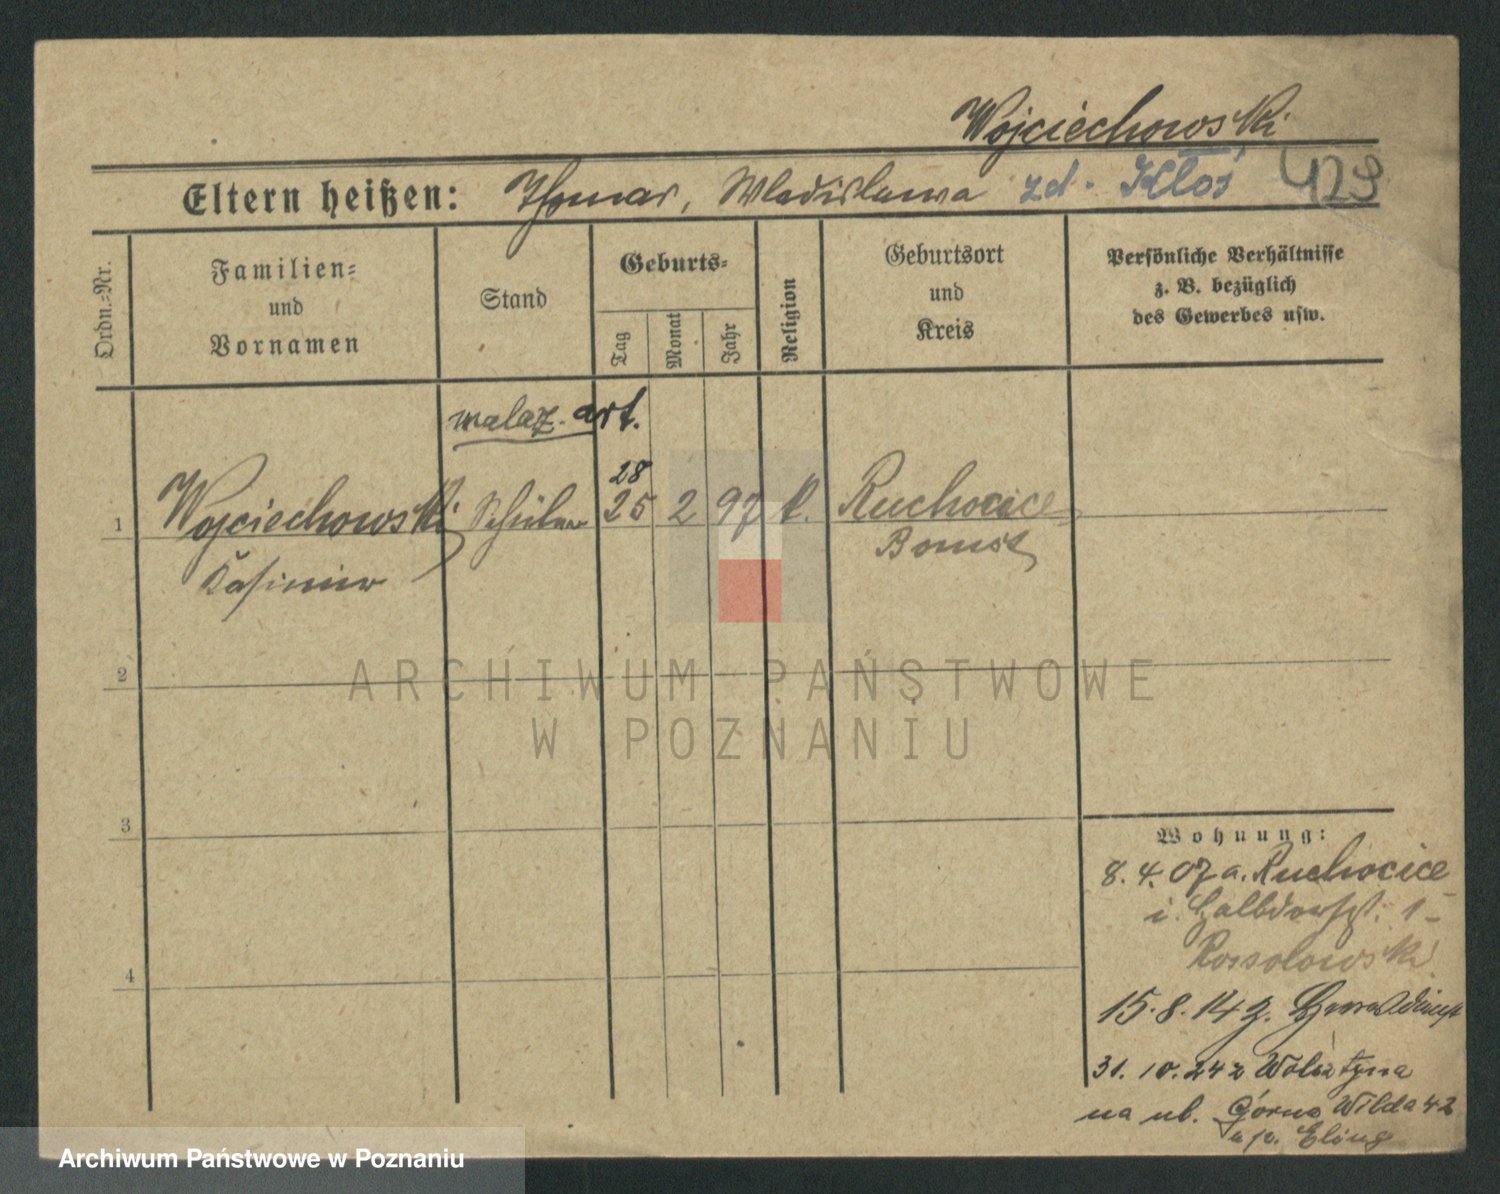 Wojciechowski
Eltern heißen: Thomas, Wladislawa zd. Kłoś 429
Ordn.-Nr.
Familien-
und
Vornamen
Stand
Geburts-
Tag
Monat
Jahr
Religion
Geburtsort
und
Kreis
Persönliche Verhältnisse
z. B. bezüglich
des Gewerbes usw.
malarz. art.
28
1 Wojciechowski Schüler 25 2 97 k. Ruchocice
Kasimir Bomst
2
3
4
Wohnung:
8. 4. 07 a. Ruchocice
i. Halbdorfstr. 1
Rossolowski
15. 8. 14 z.
31. 10. 24 z Wolsztyna
na ul. Górna Wilda 42
u p. Eling
ARCHIWUM PAŃSTWOWE
W POZNANIU
Archiwum Państwowe w Poznaniu